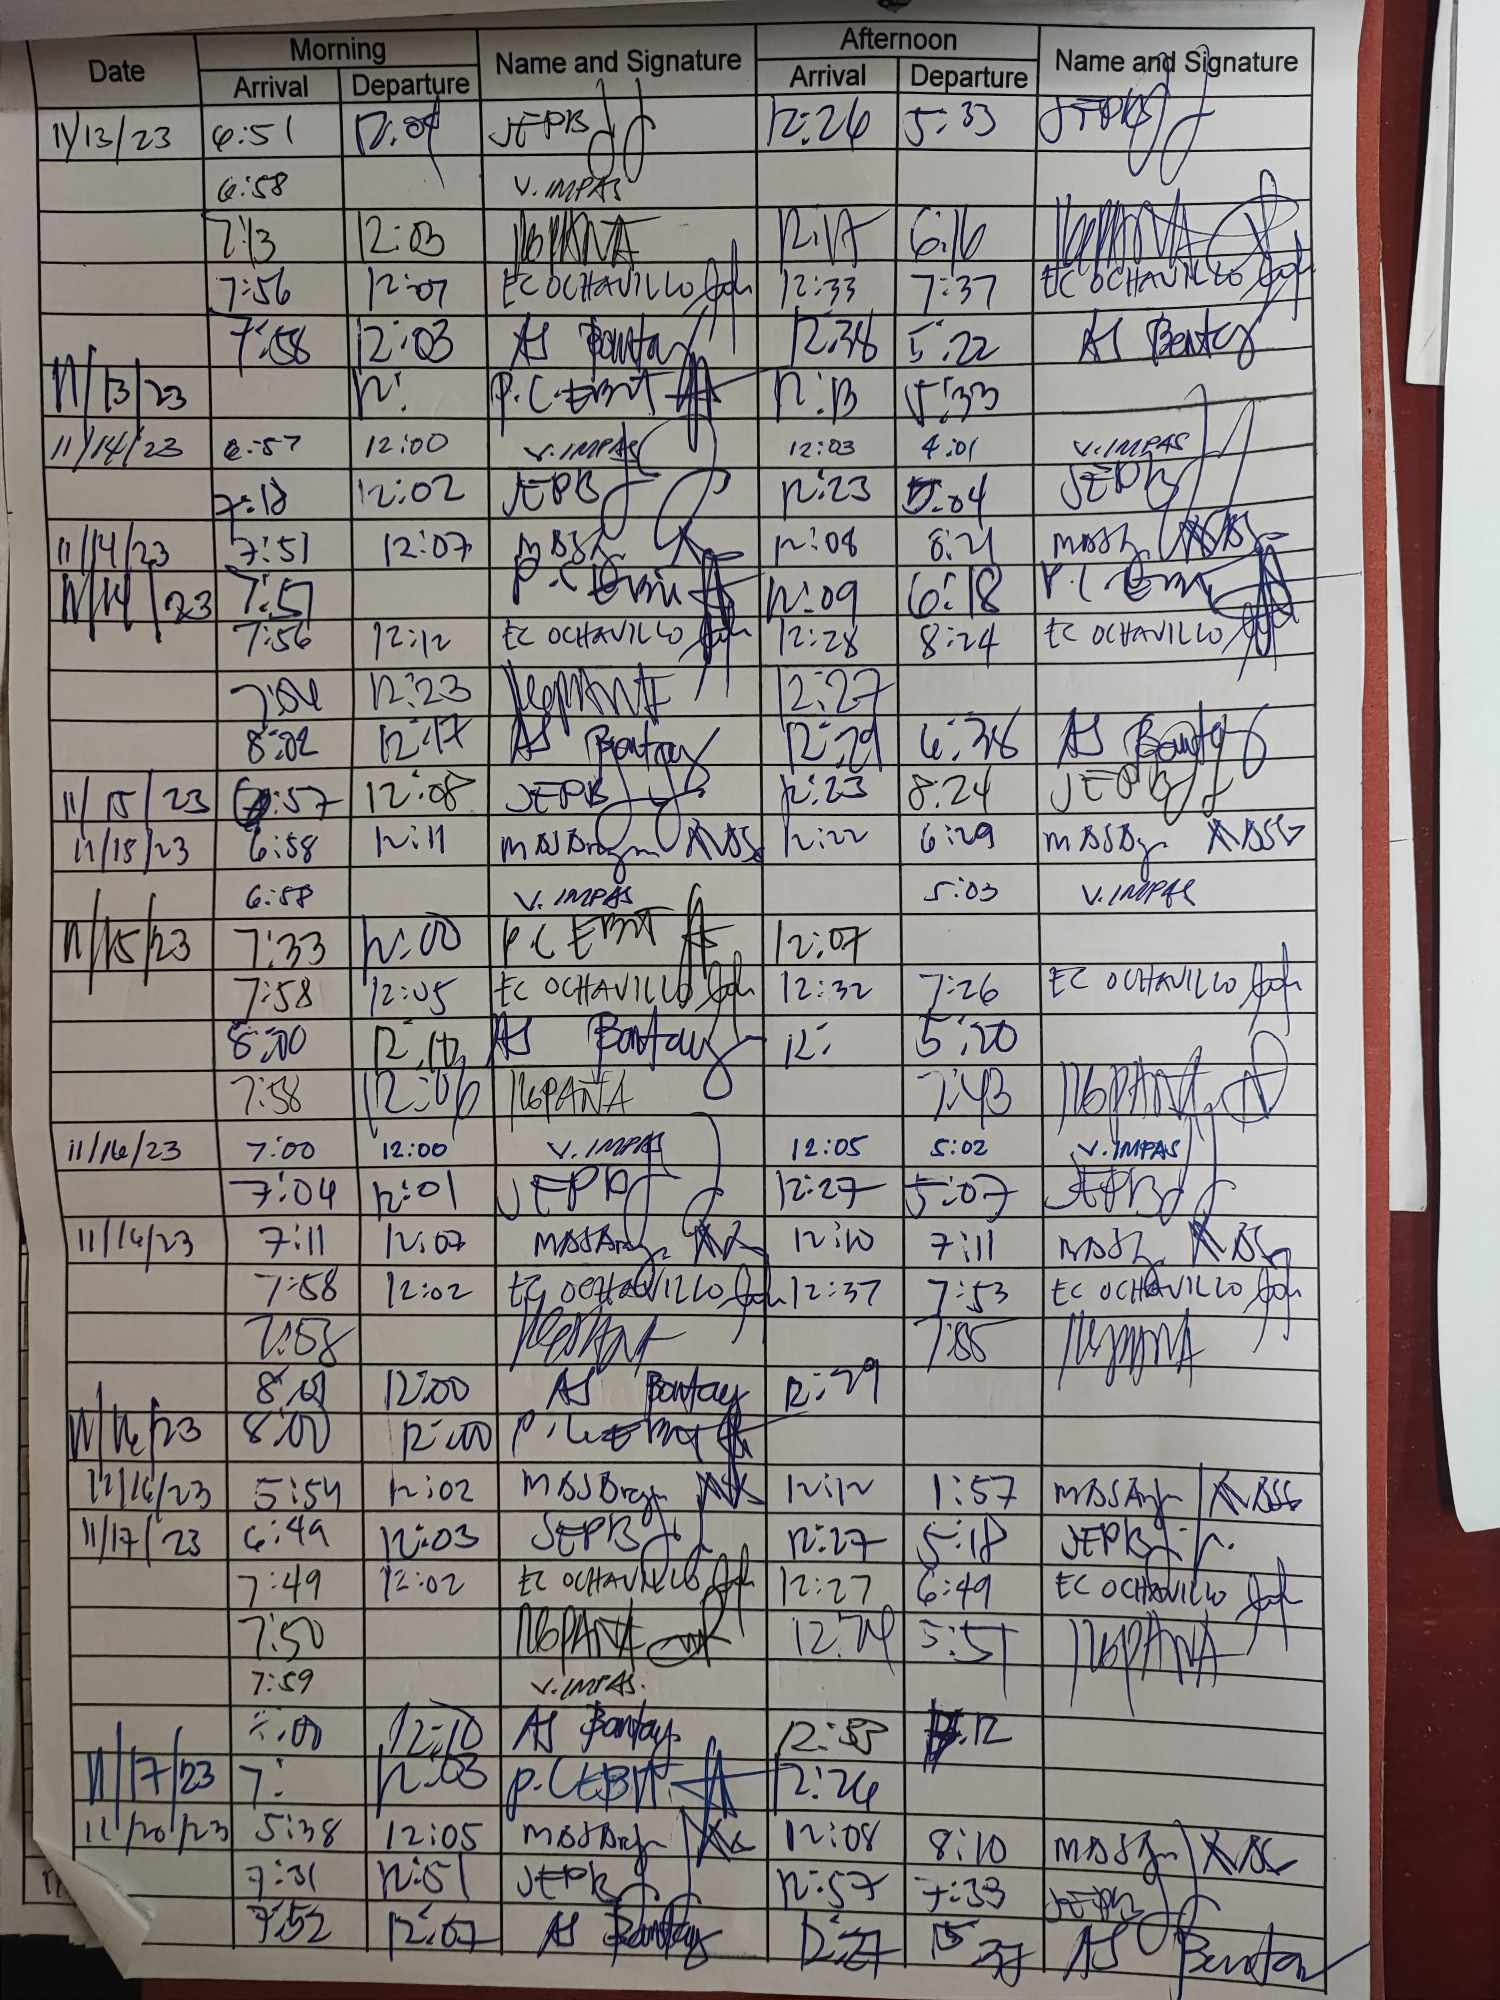 Date Morning Name and Signature Afternoon Name and Signature
Arrival Departure Arrival Departure
11/13/23 6:51 12:04 JEPB 12:26 5:33 JEPB
6:58 V. IMPAS
7:13 12:03 NGPANA 12:17 6:16 NGPANA
7:56 12:07 EC OCHAVILLO 12:33 7:37 EC OCHAVILLO
7:58 12:03 AS Bantay 12:38 5:22 AS Bantay
11/13/23 12: P.C. EBIT 12:13 5:33
11/14/23 6:57 12:00 V. IMPAS 12:03 4:01 V. IMPAS
7:18 12:02 JEPB 12:23 5:04 JEPB
11/14/23 7:51 12:07 12:08 8:21
11/14/23 7:51 P.C EBIT 12:09 6:18 P.C EBIT
7:56 12:12 EC OCHAVILLO 12:28 8:24 EC OCHAVILLO
12:23 NGPANA 12:27
8:02 12:17 AS Bantay 12:29 6:38 AS Bantay
11/15/23 6:57 12:08 JEPB 12:23 8:24 JEPB
11/15/23 6:58 12:11 12:22 6:29
6:58 V. IMPAS 5:03 V. IMPAS
11/15/23 7:33 12:00 P.C EBIT 12:07
7:58 12:05 EC OCHAVILLO 12:32 7:26 EC OCHAVILLO
8:00 AS Bantay 12: 5:20
7:58 12:06 NGPANA 7:43 NGPANA
11/16/23 7:00 12:00 V. IMPAS 12:05 5:02 V. IMPAS
7:04 12:01 JEPB 12:27 5:07 JEPB
11/16/23 7:11 12:07 12:10 7:11
7:58 12:02 EC OCHAVILLO 12:37 7:53 EC OCHAVILLO
7:58 NGPANA 7:55 NGPANA
8:01 12:00 AS Bantay 12:29
11/16/23 8:00 12:00 P.C EBIT
11/16/23 5:54 12:02 12:12 1:57
11/17/23 6:49 12:03 JEPB 12:27 5:18 JEPB
7:49 12:02 EC OCHAVILLO 12:27 6:49 EC OCHAVILLO
7:50 NGPANA 5:51 NGPANA
7:59 V. IMPAS.
12:10 AS Bantay 12:33
11/17/23 7: 12:03 P.C EBIT 12:26
11/20/23 5:38 12:05 12:08 8:10
7:31 12:51 JEPB 12:57 7:33 JEPB
7:52 12:07 AS Bantay 12:27 5 37 AS Bantay